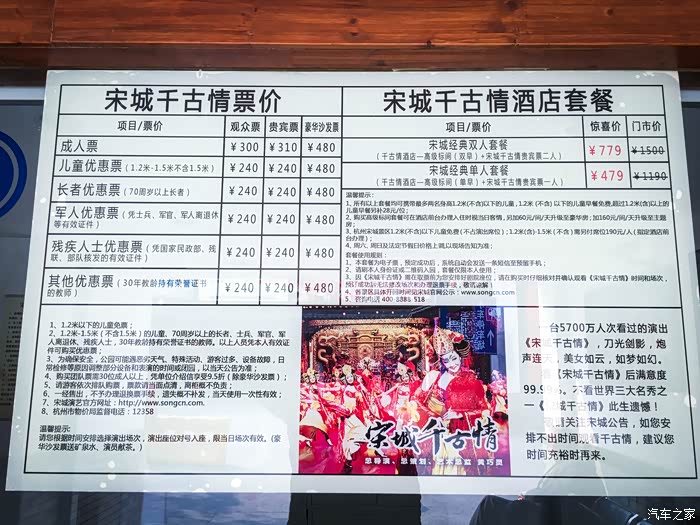 宋城千古情票价
项目/票价 观众票 贵宾票 豪华沙发票
成人票 ￥300 ￥310 ￥480
儿童优惠票（1.2米-1.5米不含1.5米） ￥240 ￥240 ￥480
长者优惠票（70周岁以上长者） ￥240 ￥240 ￥480
军人优惠票（凭士兵、军官、军人离退休等有效证件） ￥240 ￥240 ￥480
残疾人士优惠票（凭国家民政部、残联、部队核发的有效证件） ￥240 ￥240 ￥480
其他优惠票（30年教龄持有荣誉证书的教师） ￥240 ￥240 ￥480
1、1.2米以下的儿童免票；
2、1.2米-1.5米（不含1.5米）的儿童、70周岁以上的长者、士兵、军官、军
人离退休、残疾人士，30年教龄持有荣誉证书的教师。以上人员凭本人有效证
件可购买优惠票；
3、为确保安全，公园可能遇恶劣天气、特殊活动、游客过多、设备故障，日
常检修等原因调整部分设备和表演的时间或团园，以当天公告为准；
4、购买团队票需30位成人以上，凭单位介绍信享受9.5折（除豪华沙发票）；
5、请游客依次排队购票，票款请当面点清，离柜概不负责；
6、一经售出，不予办理退换票手续，遗失概不补发，当天使用一次性有效；
7、宋城演艺官方网址：http://www.songcn.com；
8、杭州市物价局监督电话：12358
温馨提示：
请您根据时间安排选择演出场次，演出座位对号入座，限当日场次有效。（豪
华沙发票送矿泉水、演员献茶。）
宋城千古情酒店套餐
项目/票价 惊喜价 门市价
宋城经典双人套餐 ￥779 ￥1500
（千古情酒店—高级标间（双早）+宋城千古情贵宾票二人）
宋城经典单人套餐 ￥479 ￥1190
（千古情酒店—高级标间（单早）+宋城千古情贵宾票一人）
温馨提示：
1、所有以上套餐均可携带最多两名身高1.2米(不含)以下的儿童，1.2米(不含)以下的儿童早餐免费,超过1.2米(含)以上的
儿童早餐另补28元/位；
2、购买高级标间套餐可在酒店前台办理入住时视当日客情，另加60元/间/天升级至豪华房；加160元/间/天升级至主题
房；
3、杭州宋城景区1.2米(不含)以下儿童免费(不占演出席位)；1.2米(含)-1.5米(不含)需另付席位190元/人(指定酒店前
台办理)；
4、周六、周日及法定节假日价格上调,以现场告知为准；
套餐使用规则：
1、本套餐为电子票，预定成功后，系统自动会发送一条短信至预留手机；
2、请刷本人身份证或二维码入园，套餐仅限本人使用；
3、因《宋城千古情》需在取票前为您安排好剧院座位，请在购买时仔细核对并确认观看《宋城千古情》时间和场次，
预订成功后无法擅改场次和办理退票手续，敬请谅解！
4、各景区具体开园时间见宋城官网公示：www.songcn.com
宋城千古情
总导演、总策划、艺术总监 黄巧灵
一台5700万人次看过的演出
《宋城千古情》，刀光剑影，炮
声连天，美女如云，如梦如幻。
《宋城千古情》后满意度
99.99%。不看世界三大名秀之
一《宋城千古情》此生遗憾！
关注宋城公告，如您安
排不出时间观看千古情，建议您
时间充裕时再来。
汽车之家